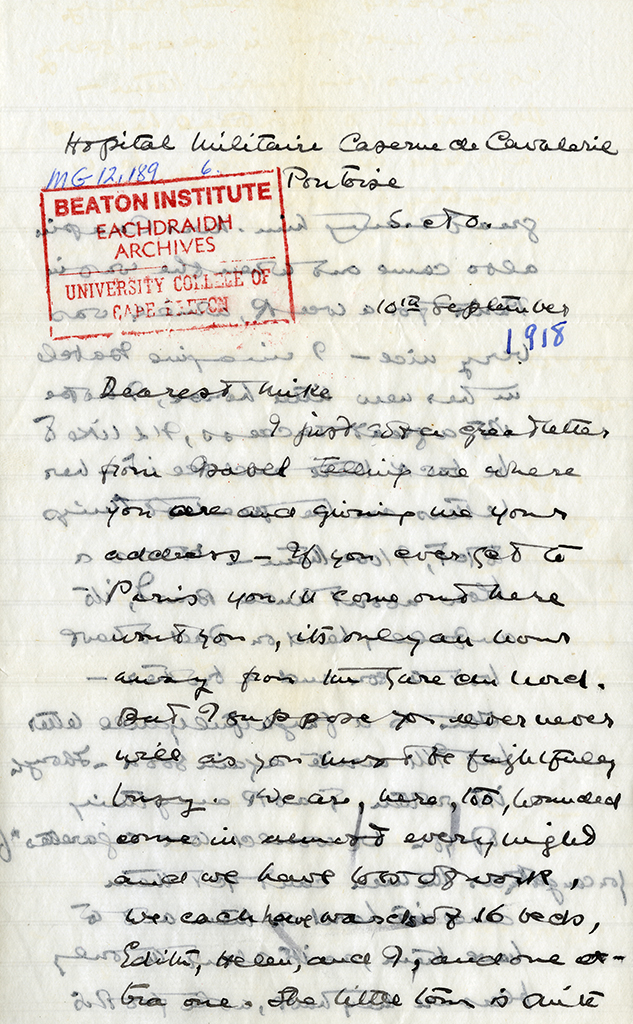 Hopital Militaire Caserne de Cavalerie
MG 12, 189 6.
Pontoise
BEATON INSTITUTE
EACHDRAIDH
ARCHIVES
UNIVERSITY COLLEGE OF
CAPE BRETON
S. et O.
10th September
1918
Dearest Mike
I just got a great letter
from Isabel telling me where
you are and giving me your
address – If you ever get to
Paris you'll come out here
wont you, its only an hour
away from the Gare du Nord.
But I suppose you never never
will as you must be frightfully
busy. We are, here, too, wounded
come in almost every night
and we have lots of work,
we each have wards of 16 beds,
Edith, Helen, and I, and one ex-
tra one. The little town is quite